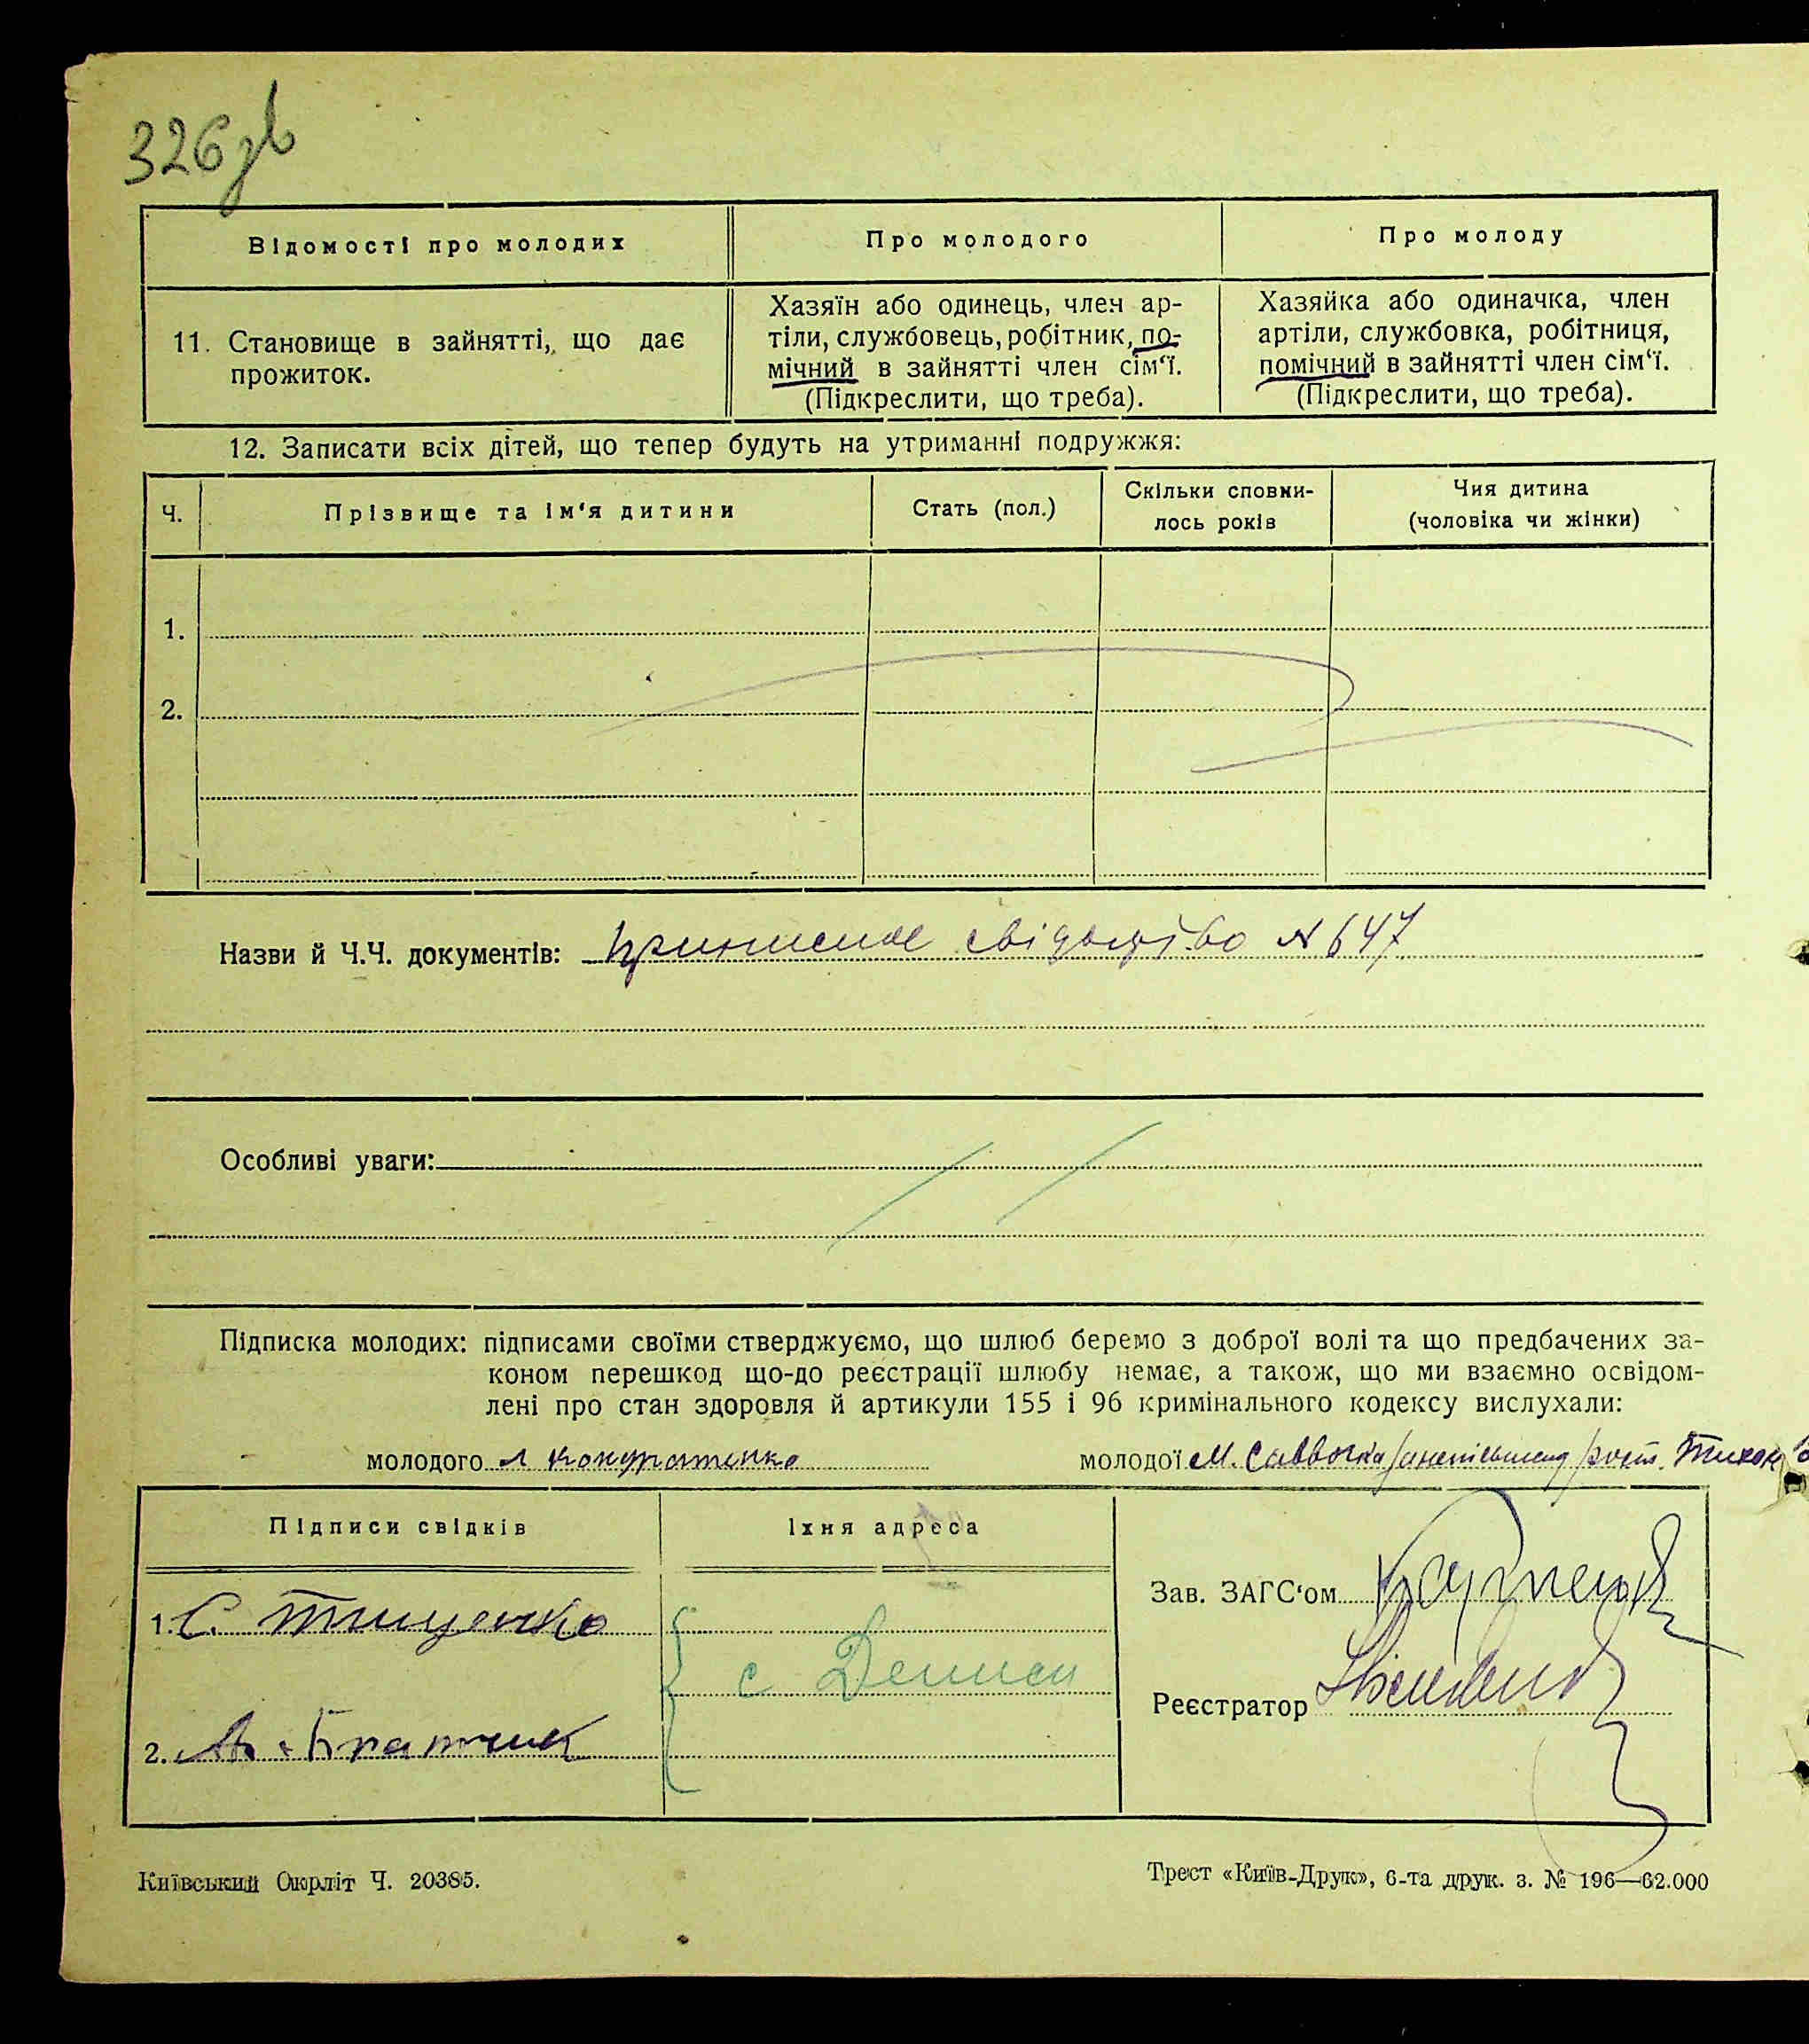 326зв
Відомості про молодих
Про молодого
Про молоду
11. Становище в зайнятті, що дає
прожиток.
Хазяїн або одинець, член ар-
тіли, службовець, робітник, по-
мічний в зайнятті член сім‘ї.
(Підкреслити, що треба).
Хазяйка або одиначка, член
артіли, службовка, робітниця,
помічний в зайнятті член сім‘ї.
(Підкреслити, що треба).
12. Записати всіх дітей, що тепер будуть на утриманні подружжя:
Ч.
Прізвище та ім‘я дитини
Стать (пол.)
Скільки сповни-
лось років
Чия дитина
(чоловіка чи жінки)
1.
2.
Назви й Ч.Ч. документів: приписне свідоцтво № 647
Особливі уваги:
Підписка молодих: підписами своїми стверджуємо, що шлюб беремо з доброї волі та що предбачених за-
коном перешкод що-до реєстрації шлюбу немає, а також, що ми взаємно освідом-
лені про стан здоровля й артикули 155 і 96 кримінального кодексу вислухали:
молодого Л Кондратенко
молодої М. Саввочка
Підписи свідків
Їхня адреса
1. С. Тищенко
с Дениси
2. Братчик
Зав. ЗАГС‘ом
Реєстратор
Київський Окрліт Ч. 20385.
Трест «Київ-Друк», 6-та друк. з. № 196—62.000